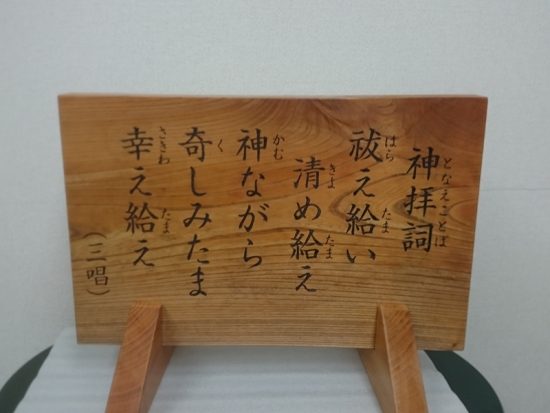 神拝詞
となえことば
祓え給い
はら
たま
清め給え
きよ
たま
神ながら
かむ
奇しみたま
く
幸え給え
さきわ
たま
（三唱）